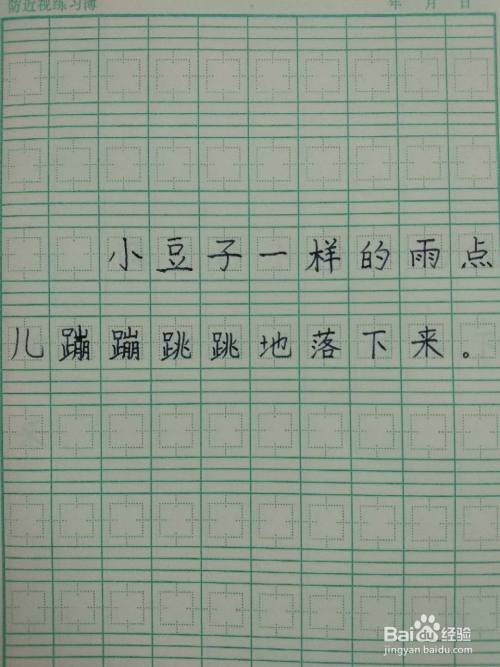 防近视练习薄
年 月 日
小豆子一样的雨点
儿蹦蹦跳跳地落下来。
Baidu经验
jingyan.baidu.com